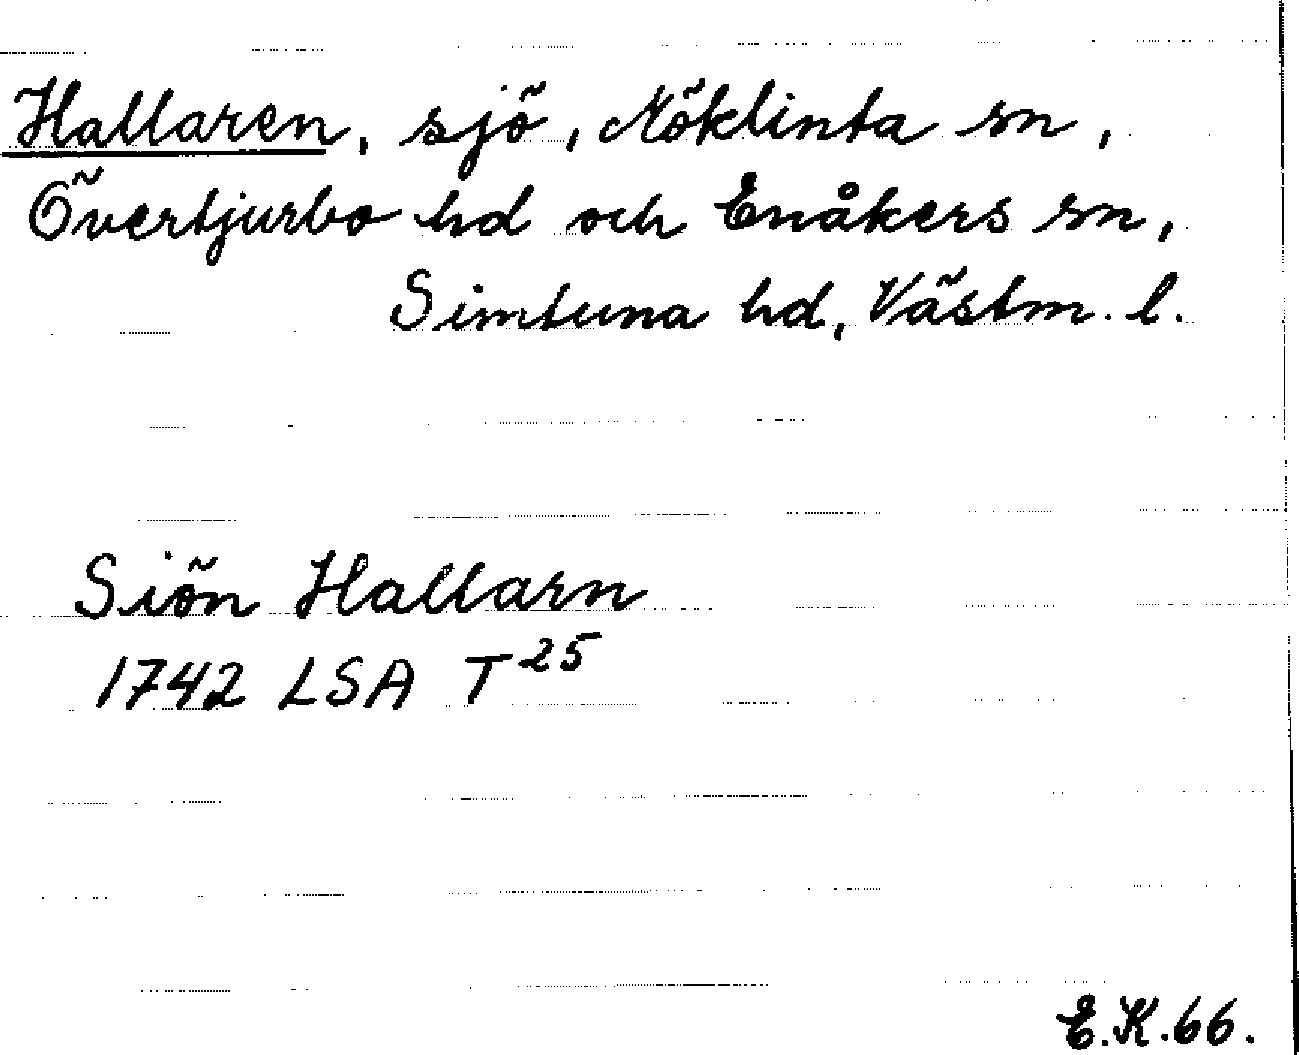 Hallaren, sjö, Möklinta sn,
Övertjurbo hd och Enåkers sn,
Simtuna hd, Västm. l.
Siön Hallarn
1742 LSA T25
E.K.66.